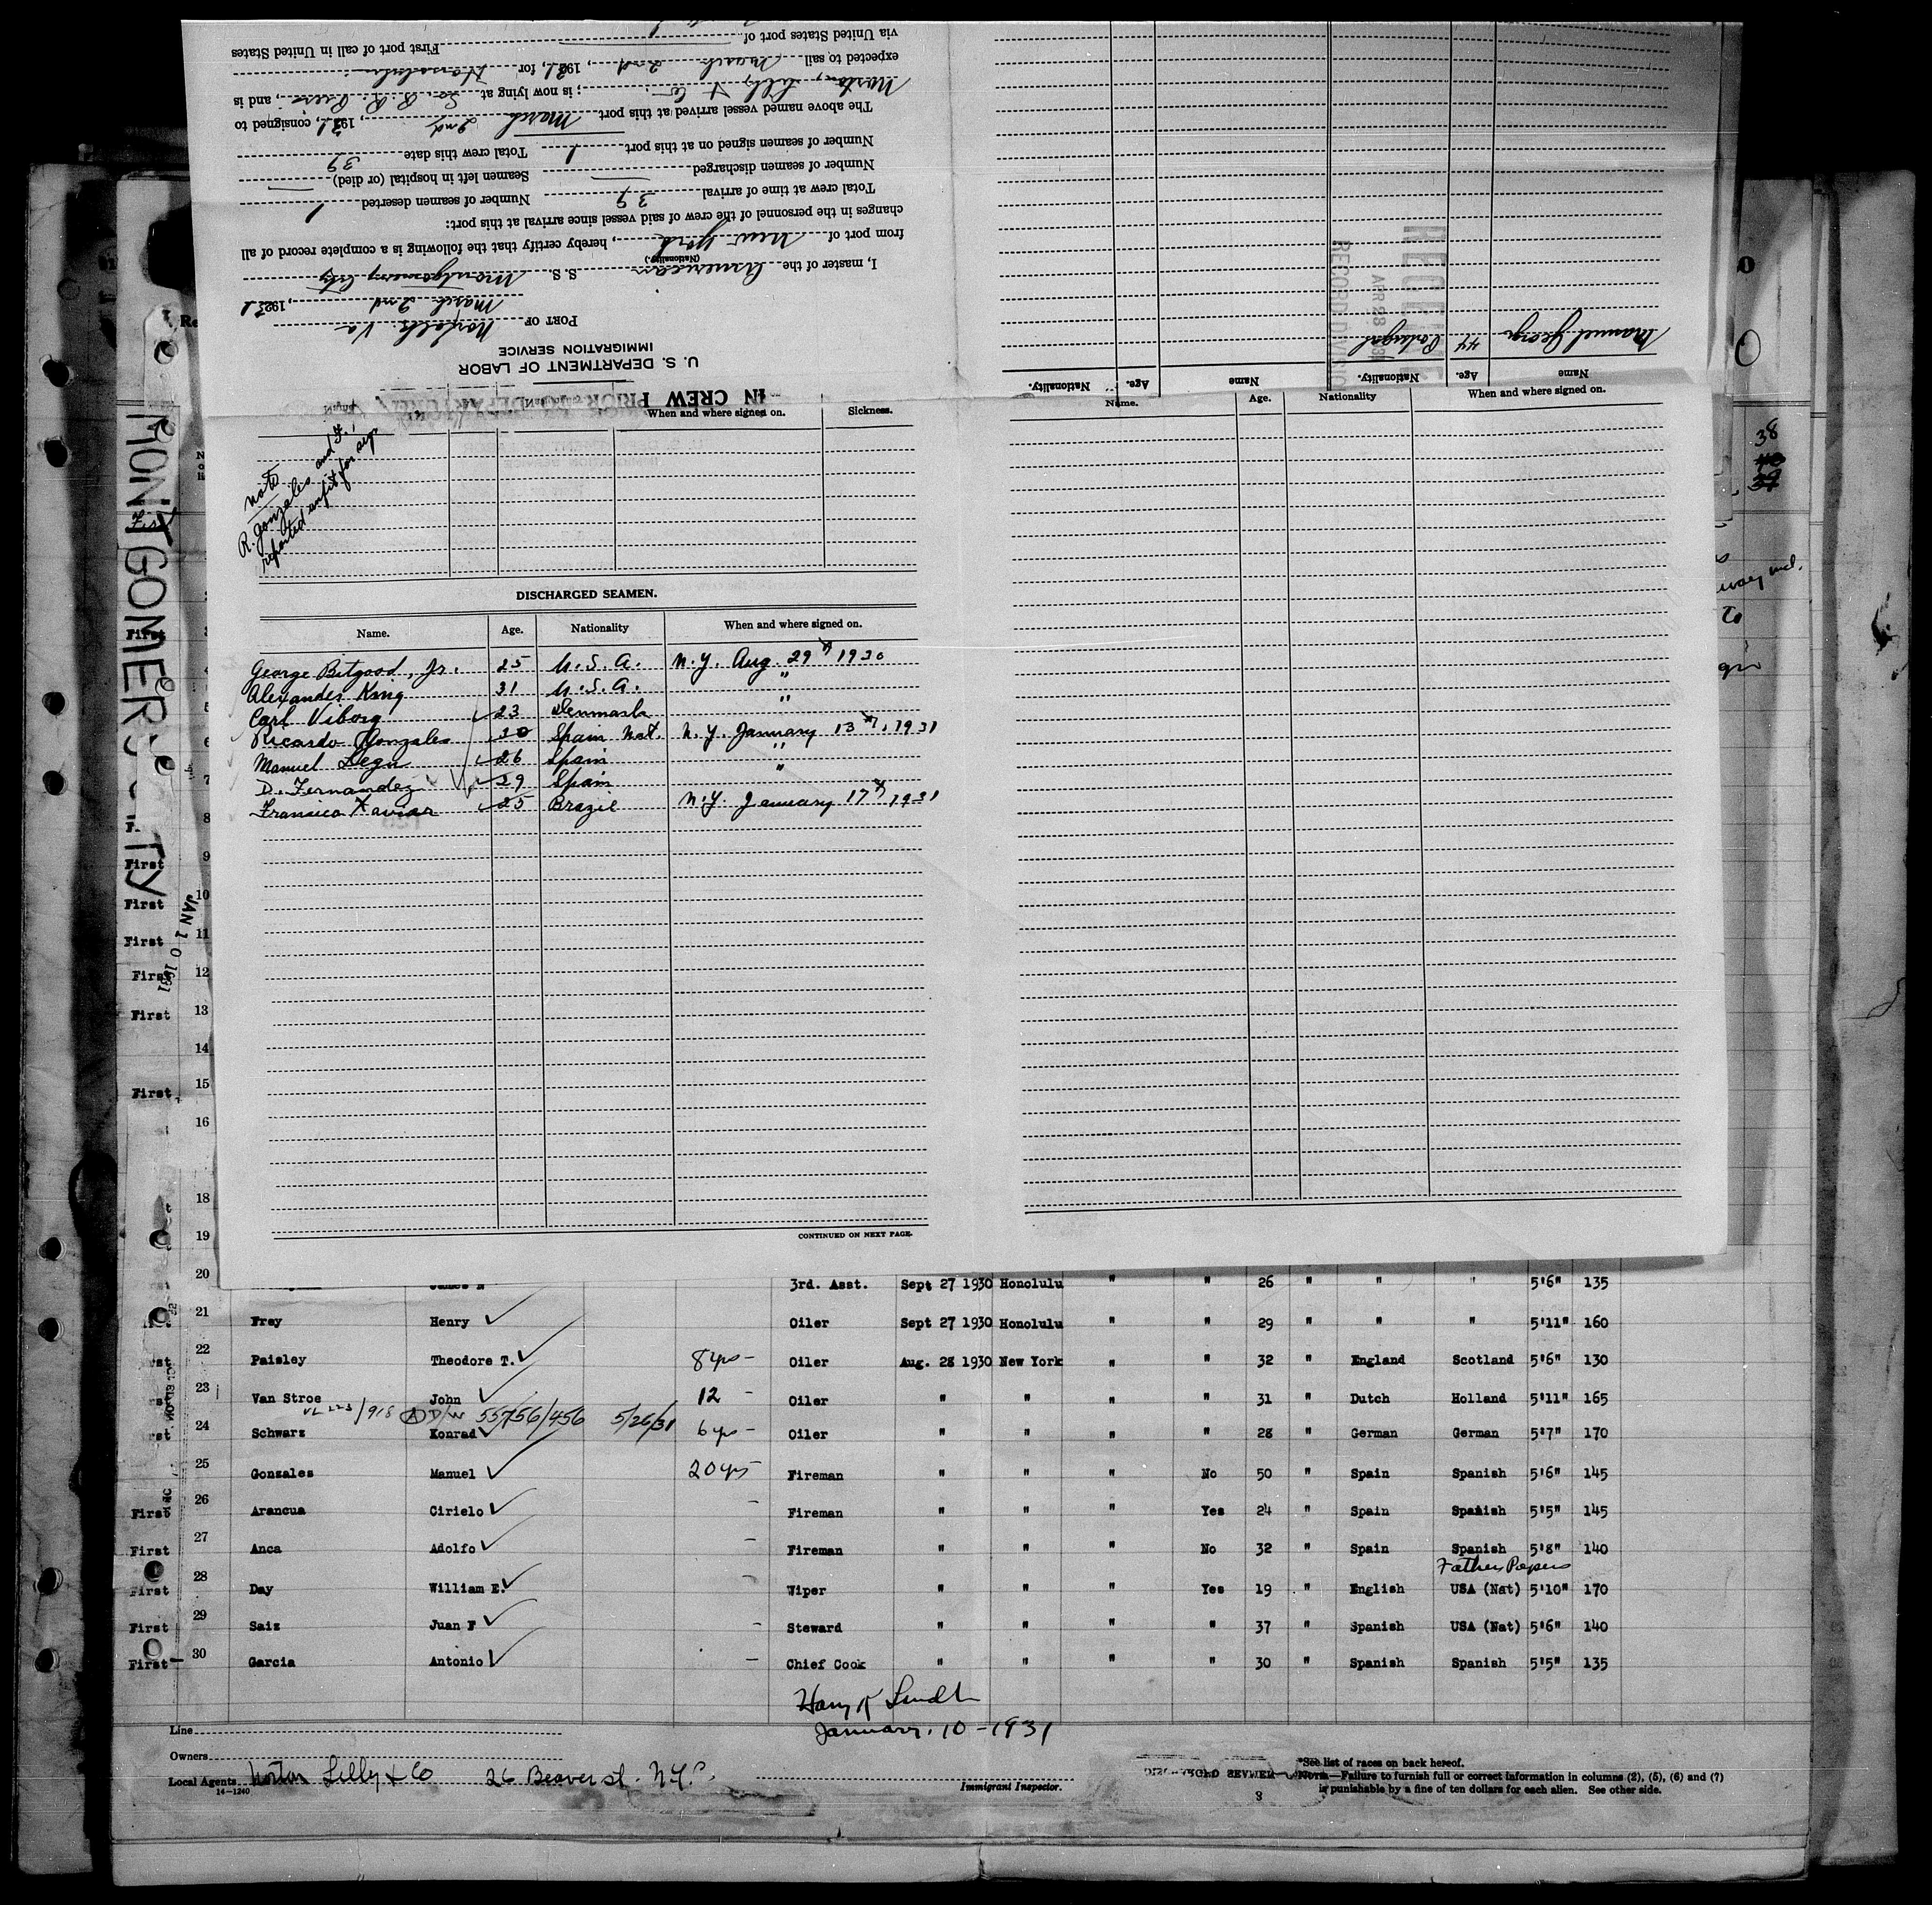 U. S. DEPARTMENT OF LABOR
IMMIGRATION SERVICE
PORT OF Norfolk Va
March 2nd, 1931
I, master of the American S. S. Montgomery City
(Nationality.)
from port of New York, hereby certify that the following is a complete record of all
changes in the personnel of the crew of said vessel since arrival at this port:
Total crew at time of arrival 39 Number of seamen deserted 1
Number of seamen discharged Seamen left in hospital (or died)
Number of seamen signed on at this port 1 Total crew this date 39
The above named vessel arrived at this port March 2nd, 1931, consigned to
Norton, Lilly & Co; is now lying at So. R. R. Piers, and is
expected to sail March 2nd, 1931, for Honolulu
via United States port of First port of call in United States
Name Age. Nationality. Name Age. Nationality.
Manuel George 44 Portugal
RECORD DIVISION
APR 28
IN CREW PRIOR DEPARTURE
When and where signed on. Sickness.
Name. Age. Nationality When and where signed on.
note
R. Gonzales and F.
reported unfit for
DISCHARGED SEAMEN.
Name. Age. Nationality When and where signed on.
George Bitgood, Jr. 25 U. S. A. N. Y. Aug. 29th 1930
Alexander King 31 U. S. A. "
Carl Viborg 23 Denmark "
Ricardo Gonzales Spain Nat. N. Y. January 13th, 1931
Manuel 26 Spain "
D. Fernandez 29 Spain "
Fransico Xavier 25 Brazil N. Y. January 17th 1931
CONTINUED ON NEXT PAGE.
MONTGOMERY CITY
JAN 10 1931
38
39
First 9
First 10
First 11
First 12
First 13
14
First 15
16
18
19
20 James 3rd. Asst. Sept 27 1930 Honolulu " " 26 " " " 5'6" 135
21 Frey Henry Oiler Sept 27 1930 Honolulu " " 29 " " " 5'11" 160
22 Paisley Theodore T. 8 yrs - Oiler Aug. 28 1930 New York " " 32 " England Scotland 5'6" 130
23 Van Stroe John 12 - Oiler " " " " 31 " Dutch Holland 5'11" 165
55756/456 5/26/31
24 Schwarz Konrad 6 yrs - Oiler " " " " 28 " German German 5'7" 170
25 Gonzales Manuel 20 yrs Fireman " " " No 50 " Spain Spanish 5'6" 145
First 26 Arancua Cirielo - Fireman " " " Yes 24 " Spain Spanish 5'5" 145
First 27 Anca Adolfo - Fireman " " " No 32 " Spain Spanish 5'8" 140
Fathers Papers
First 28 Day William E. - Wiper " " " Yes 19 " English USA (Nat) 5'10" 170
First 29 Saiz Juan F - Steward " " " " 37 " Spanish USA (Nat) 5'6" 140
First 30 Garcia Antonio - Chief Cook " " " " 30 " Spanish Spanish 5'5" 135
January. 10 - 1931
Line
Owners
Local Agents Norton Lilly & Co 26 Beaver st. N.Y.C
14-1240
Immigrant Inspector.
*See list of races on back hereof.
NOTE.—Failure to furnish full or correct information in columns (2), (5), (6) and (7)
is punishable by a fine of ten dollars for each alien. See other side.
3